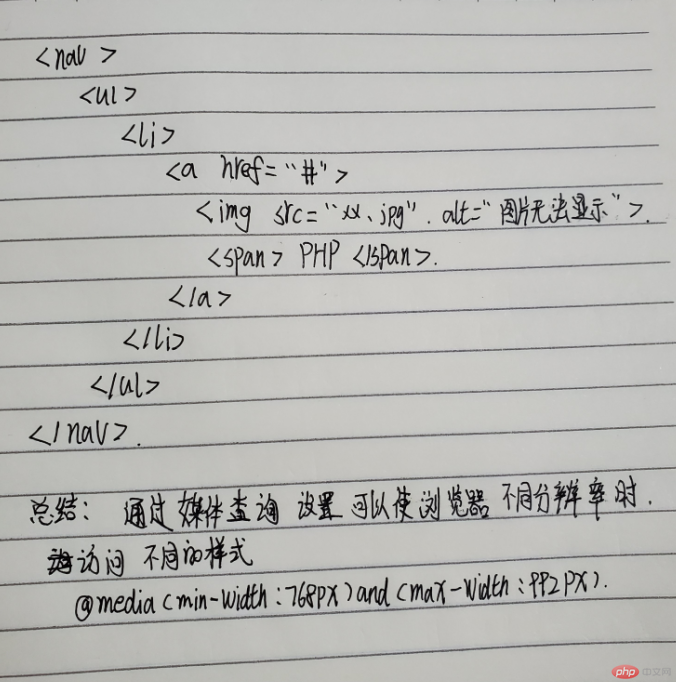 <nav>
<ul>
<li>
<a href="#">
<img src="xx.jpg". alt="图片无法显示">.
<span> PHP </span>.
</a>
</li>
</ul>
</nav>.
总结: 通过媒体查询 设置 可以使浏览器 不同分辨率时.
访问 不同的样式
@media (min-width:768px) and (max-width:992px).
php 中文网